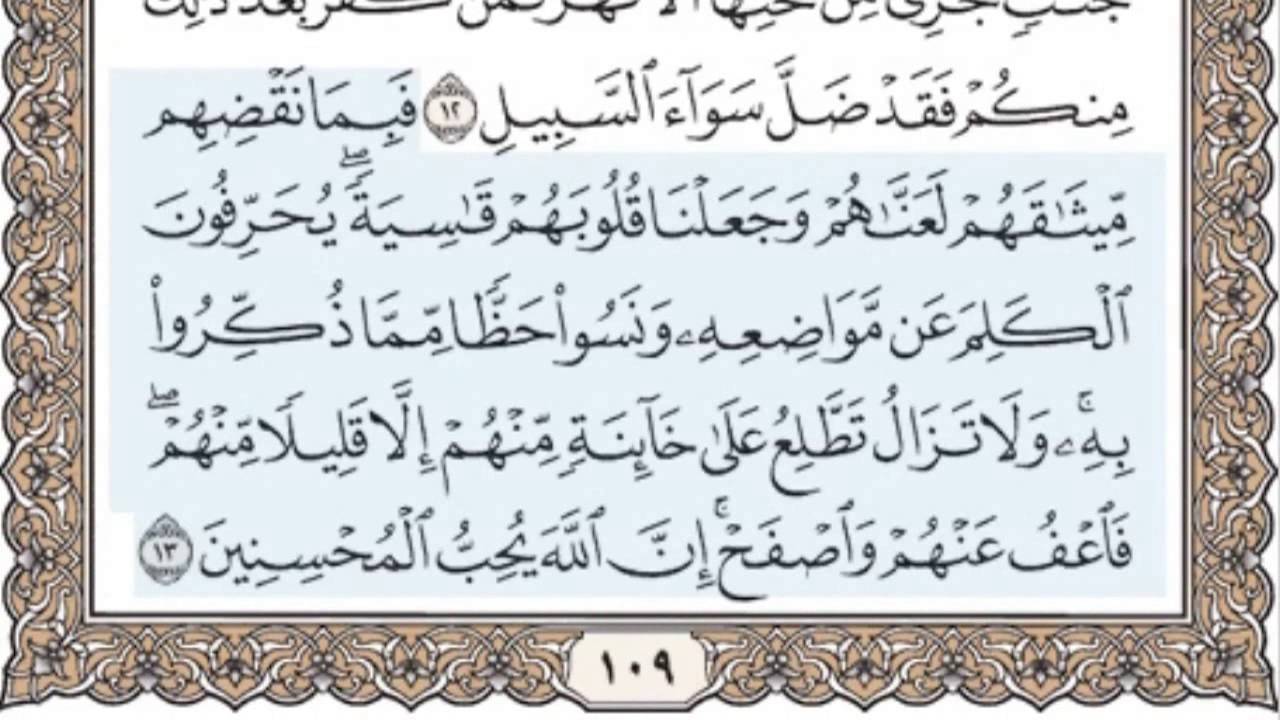 جَنَّٰتٖ تَجۡرِي مِن تَحۡتِهَا ٱلۡأَنۡهَٰرُۚ فَمَن كَفَرَ بَعۡدَ ذَٰلِكَ
مِنكُمۡ فَقَدۡ ضَلَّ سَوَآءَ ٱلسَّبِيلِ ١٢ فَبِمَا نَقۡضِهِم
مِّيثَٰقَهُمۡ لَعَنَّٰهُمۡ وَجَعَلۡنَا قُلُوبَهُمۡ قَٰسِيَةٗۖ يُحَرِّفُونَ
ٱلۡكَلِمَ عَن مَّوَاضِعِهِۦ وَنَسُواْ حَظّٗا مِّمَّا ذُكِّرُواْ
بِهِۦۚ وَلَا تَزَالُ تَطَّلِعُ عَلَىٰ خَآئِنَةٖ مِّنۡهُمۡ إِلَّا قَلِيلٗا مِّنۡهُمۡۖ
فَٱعۡفُ عَنۡهُمۡ وَٱصۡفَحۡۚ إِنَّ ٱللَّهَ يُحِبُّ ٱلۡمُحۡسِنِينَ ١٣
١٠٩